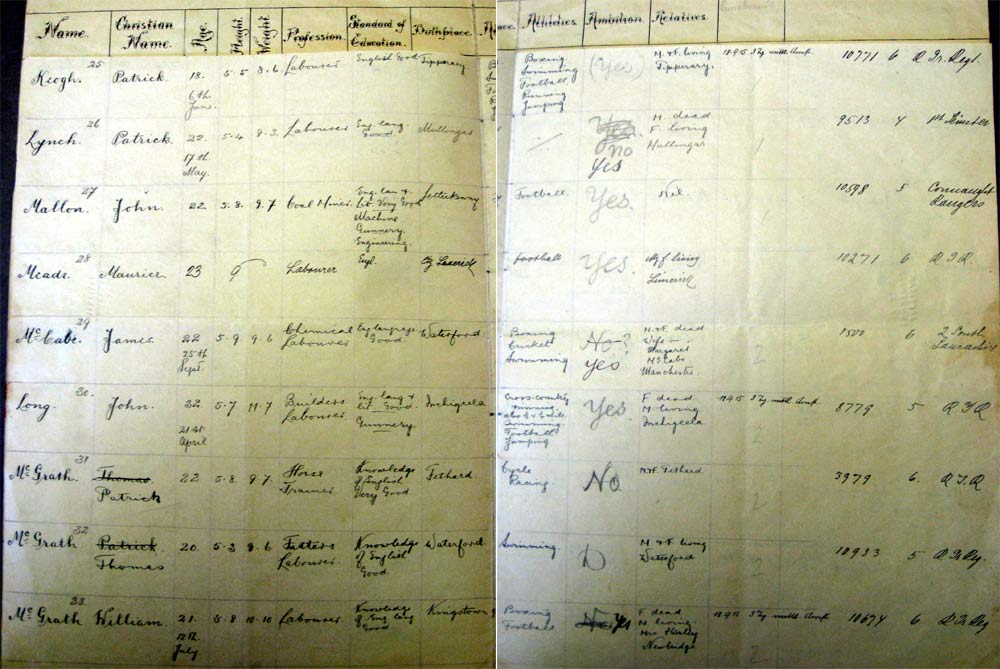 Name. Christian Name. Age. Height. Weight. Profession. Standard of Education. Birthplace. Athletics. Ambition. Relatives.
25 Keogh. Patrick. 18. 5.5 8.6 Labourer English Good Tipperary Boxing (Yes) M. & F. living 10771 6 R. Ir. Regt.
6th June. Swimming Tipperary.
Football
Running
Jumping
26 Lynch. Patrick. 22. 5.4 8.3. Labourer Eng. lang. Mullingar / Yes. M. dead 9513 4 1st Leinster
17th May. Good. no F. living 1
Yes Mullingar
27 Mallon. John. 22. 5.8. 9.7 Coal Miner. Eng. lan & Letterkenny Football. Yes. Nil. 10598 5 Connaught
lit Very Good Rangers
Machine
Gunnery.
Engineering.
28 Meade. Maurice. 23 9 Labourer Engl. Limerick Football Yes. living 10271 6 R.I.R.
Limerick
29 McCabe. James. 22 5.9 9.6 Chemical Eng language Waterford Boxing No? M. & F. dead 1500 6 2 South
25th Labourer Good. Cricket yes Wife 2 Lancashire
Sept. Swimming Margaret
McCabe
Manchester.
30. Long. John. 32. 5.7 11.7 Builders Eng. lang & Inchigeela Cross-country Yes F. dead 8779 5 R.I.R
21st Labourer lit. Good. running M. living 2
April Gunnery. Swimming Inchigeela
Football
Jumping
31 McGrath. Thomas 22 5.8. 9.7. Horse Knowledge Fethard. Cycle No M. & F. Fethard. 3979 6. R.I.R
Patrick Trainer of English Racing. 2
Very Good.
32 McGrath Patrick 20. 5.3 9.6 Fitters Knowledge Waterford Swimming. M. & F. living 10933 5 R.Ir.Rg.
Thomas Labourer of English Waterford 2
Good.
33 McGrath William. 21. 5.8 10.10 Labourer Knowledge Kingstown Boxing No yes F. dead 10674 6 R.Ir.Rg
12th of Eng lang Football M. living
July Good Mrs
Newbridge 2